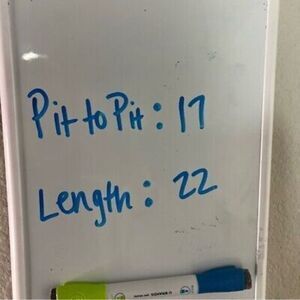 Pit to Pit: 17
Length: 22